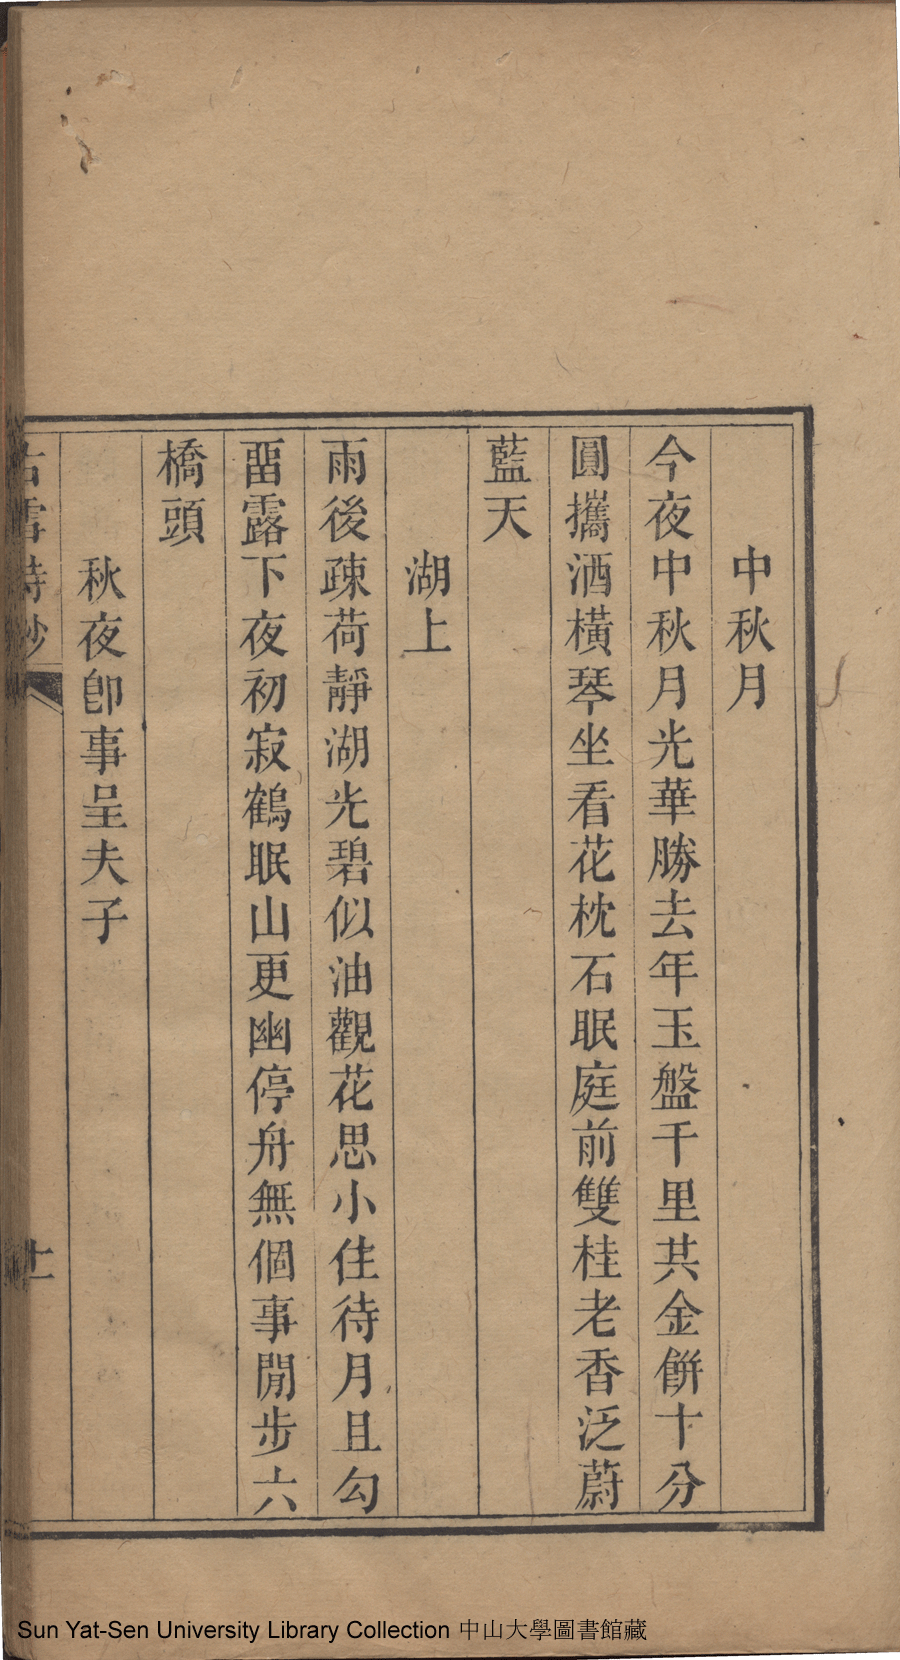 中秋月
今夜中秋月光華勝去年玉盤千里共金餅十分
圓攜酒橫琴坐看花枕石眠庭前雙桂老香泛蔚
藍天
湖上
雨後疎荷靜湖光碧似油觀花思小住待月且勾
畱露下夜初寂鶴眠山更幽停舟無個事閒步六
橋頭
秋夜卽事呈夫子
古雪詩鈔
十一
Sun Yat-Sen University Library Collection 中山大學圖書館藏